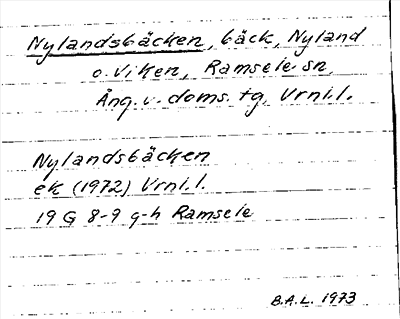 Nylandsbäcken, bäck, Nyland
o. Viken, Ramsele sn,
Ång. v. doms. tg, Vrnl.l.
Nylandsbäcken
ek (1972) Vrnl.l.
19 G 8-9 g-h Ramsele
B.A.L. 1973